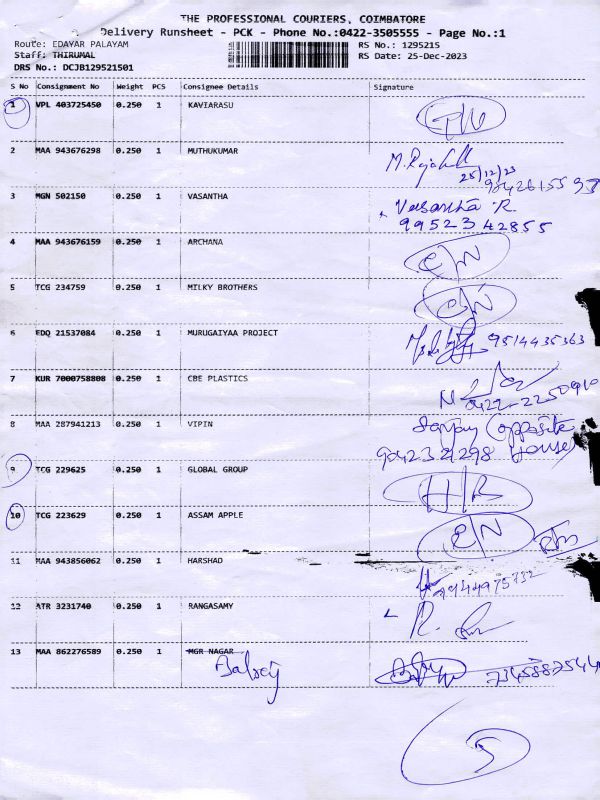 THE PROFESSIONAL COURIERS, COIMBATORE
Delivery Runsheet - PCK - Phone No.:0422-3505555 - Page No.:1
Route: EDAYAR PALAYAM RS No.: 1295215
Staff: THIRUMAL RS Date: 25-Dec-2023
DRS No.: DCJB129521501
S No Consignment No Weight PCS Consignee Details Signature
1 VPL 403725450 0.250 1 KAVIARASU
2 MAA 943676298 0.250 1 MUTHUKUMAR
25/12/23
3 MGN 502150 0.250 1 VASANTHA Vasantha R
9952342855
4 MAA 943676159 0.250 1 ARCHANA
5 TCG 234759 0.250 1 MILKY BROTHERS
6 EDQ 21537084 0.250 1 MURUGAIYAA PROJECT 9514435363
7 KUR 7000758808 0.250 1 CBE PLASTICS
8 MAA 287941213 0.250 1 VIPIN Sanjay (opposite
House)
9 TCG 229625 0.250 1 GLOBAL GROUP
10 TCG 223629 0.250 1 ASSAM APPLE
11 MAA 943856062 0.250 1 HARSHAD
12 ATR 3231740 0.250 1 RANGASAMY
13 MAA 862276589 0.250 1 MGR NAGAR
5